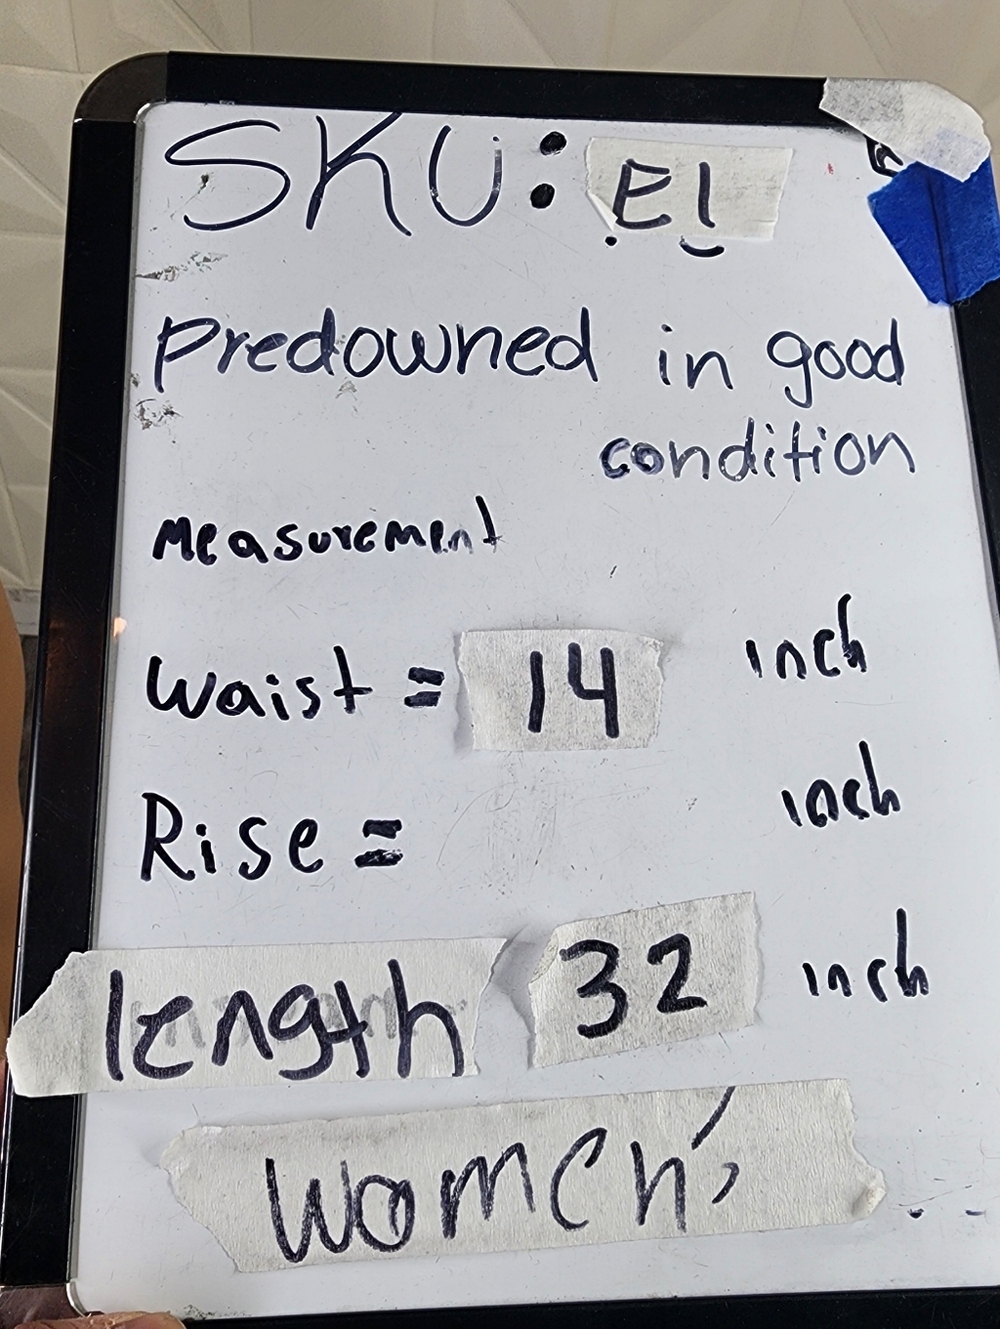 SKU: E1
Predowned in good
condition
Measurement
Waist = 14 inch
Rise = inch
length 32 inch
women'